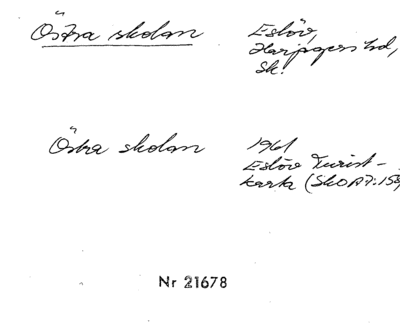 Östra skolan
Eslöv,
Harjagers hd,
Sk.
Östra skolan
1961
Eslöv Turist-
karta (SkOA 7:153
Nr 21678